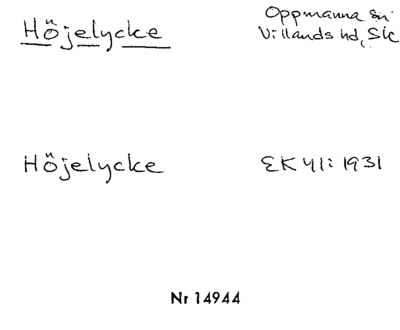 Höjelycke
Oppmanna sn
Villands hd, Sk
Höjelycke
EK 41: 1931
Nr 14944